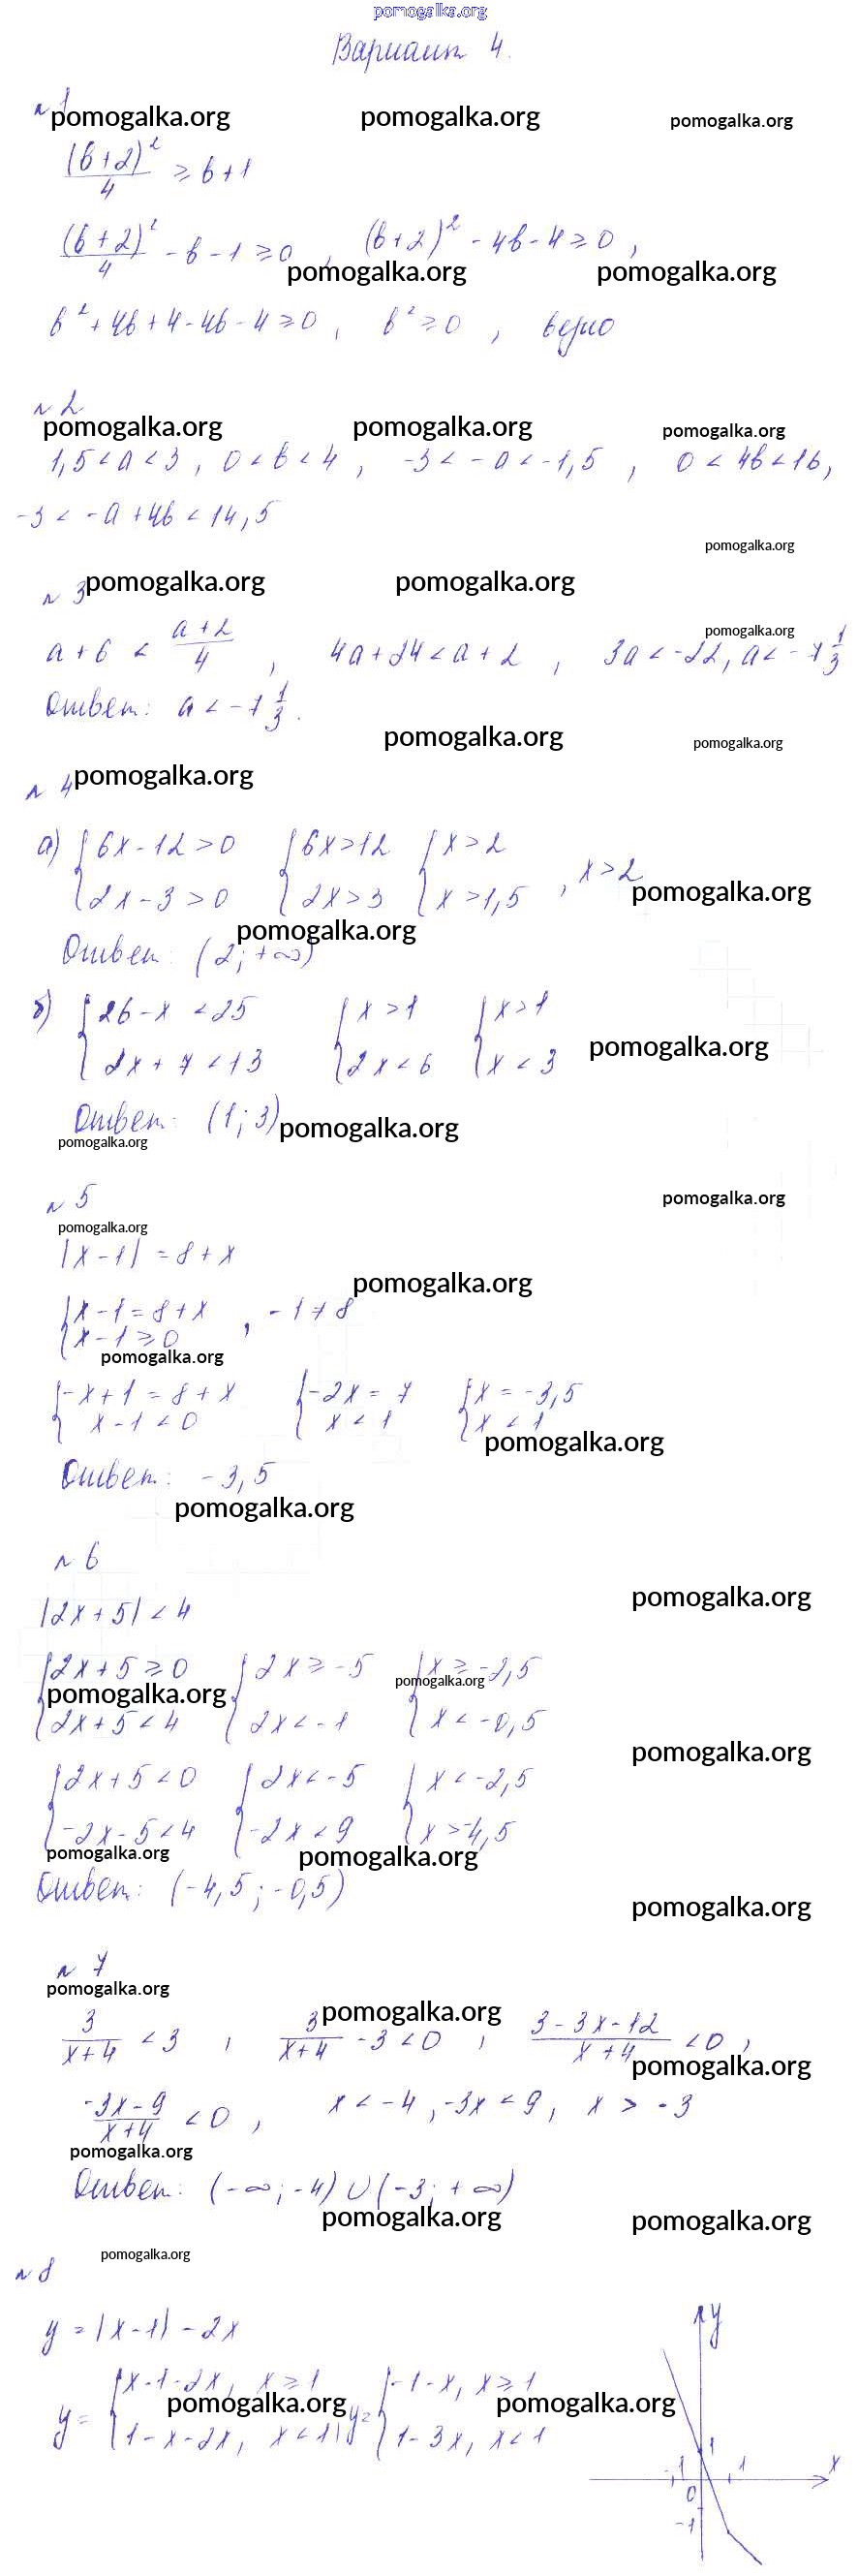 pomogalka.org
Вариант 4.
№ 1
pomogalka.org pomogalka.org pomogalka.org
(b+2)²/4 ≥ b+1
(b+2)²/4 - b - 1 ≥ 0, (b+2)² - 4b - 4 ≥ 0,
pomogalka.org pomogalka.org
b² + 4b + 4 - 4b - 4 ≥ 0, b² ≥ 0, верно
№ 2
pomogalka.org pomogalka.org pomogalka.org
1,5 < a < 3, 0 < b < 4, -3 < -a < -1,5, 0 < 4b < 16,
-3 < -a + 4b < 14,5
pomogalka.org
№ 3 pomogalka.org pomogalka.org
pomogalka.org
a + 6 < (a+2)/4, 4a + 24 < a + 2, 3a < -22, a < -7 1/3
Ответ: a < -7 1/3.
pomogalka.org pomogalka.org
№ 4 pomogalka.org
а) {6x - 12 > 0 {6x > 12 {x > 2
{2x - 3 > 0 {2x > 3 {x > 1,5, x > 2
pomogalka.org
pomogalka.org
Ответ: (2; +∞)
б) {26 - x < 25 {x > 1 {x > 1
pomogalka.org
{2x + 7 < 13 {2x < 6 {x < 3
Ответ: (1; 3) pomogalka.org
pomogalka.org
№ 5 pomogalka.org
pomogalka.org
|x - 1| = 8 + x
pomogalka.org
{x - 1 = 8 + x, -1 ≠ 8
{x - 1 ≥ 0
pomogalka.org
{-x + 1 = 8 + x {-2x = 7 {x = -3,5
{x - 1 < 0 {x < 1 {x < 1
pomogalka.org
Ответ: -3,5
pomogalka.org
№ 6
pomogalka.org
|2x + 5| < 4
{2x + 5 ≥ 0 {2x ≥ -5 {x ≥ -2,5
pomogalka.org pomogalka.org
{2x + 5 < 4 {2x < -1 {x < -0,5
pomogalka.org
{2x + 5 < 0 {2x < -5 {x < -2,5
{-2x - 5 < 4 {-2x < 9 {x > -4,5
pomogalka.org pomogalka.org
Ответ: (-4,5; -0,5)
pomogalka.org
№ 7
pomogalka.org
pomogalka.org
3/(x+4) < 3, 3/(x+4) - 3 < 0, (3 - 3x - 12)/(x+4) < 0,
pomogalka.org
(-3x - 9)/(x+4) < 0, x < -4, -3x < 9, x > -3
pomogalka.org
Ответ: (-∞; -4) ∪ (-3; +∞)
pomogalka.org pomogalka.org
pomogalka.org
№ 8
y = |x - 1| - 2x
y = {x - 1 - 2x, x ≥ 1 y = {-1 - x, x ≥ 1
pomogalka.org pomogalka.org
{1 - x - 2x, x < 1 {1 - 3x, x < 1
y
1
-1 1 x
0
-1